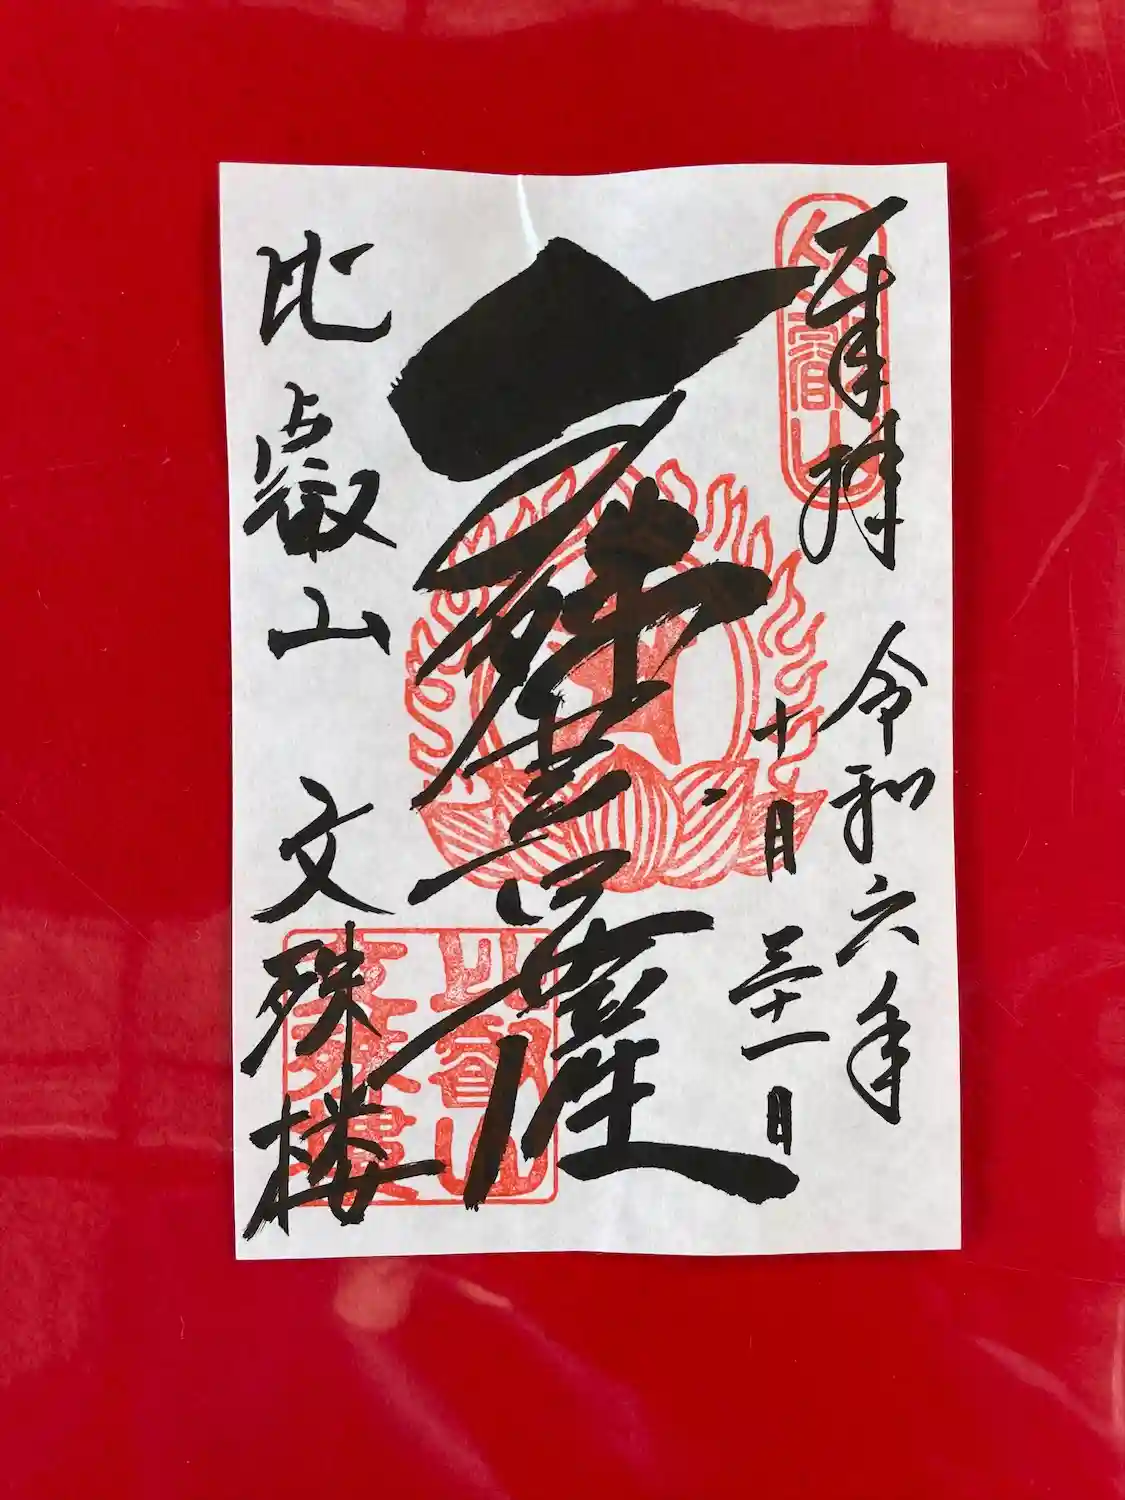 奉拝
令和六年
十月三十一日
文殊菩薩
比叡山 文殊楼
比叡山
比叡山
文殊樓